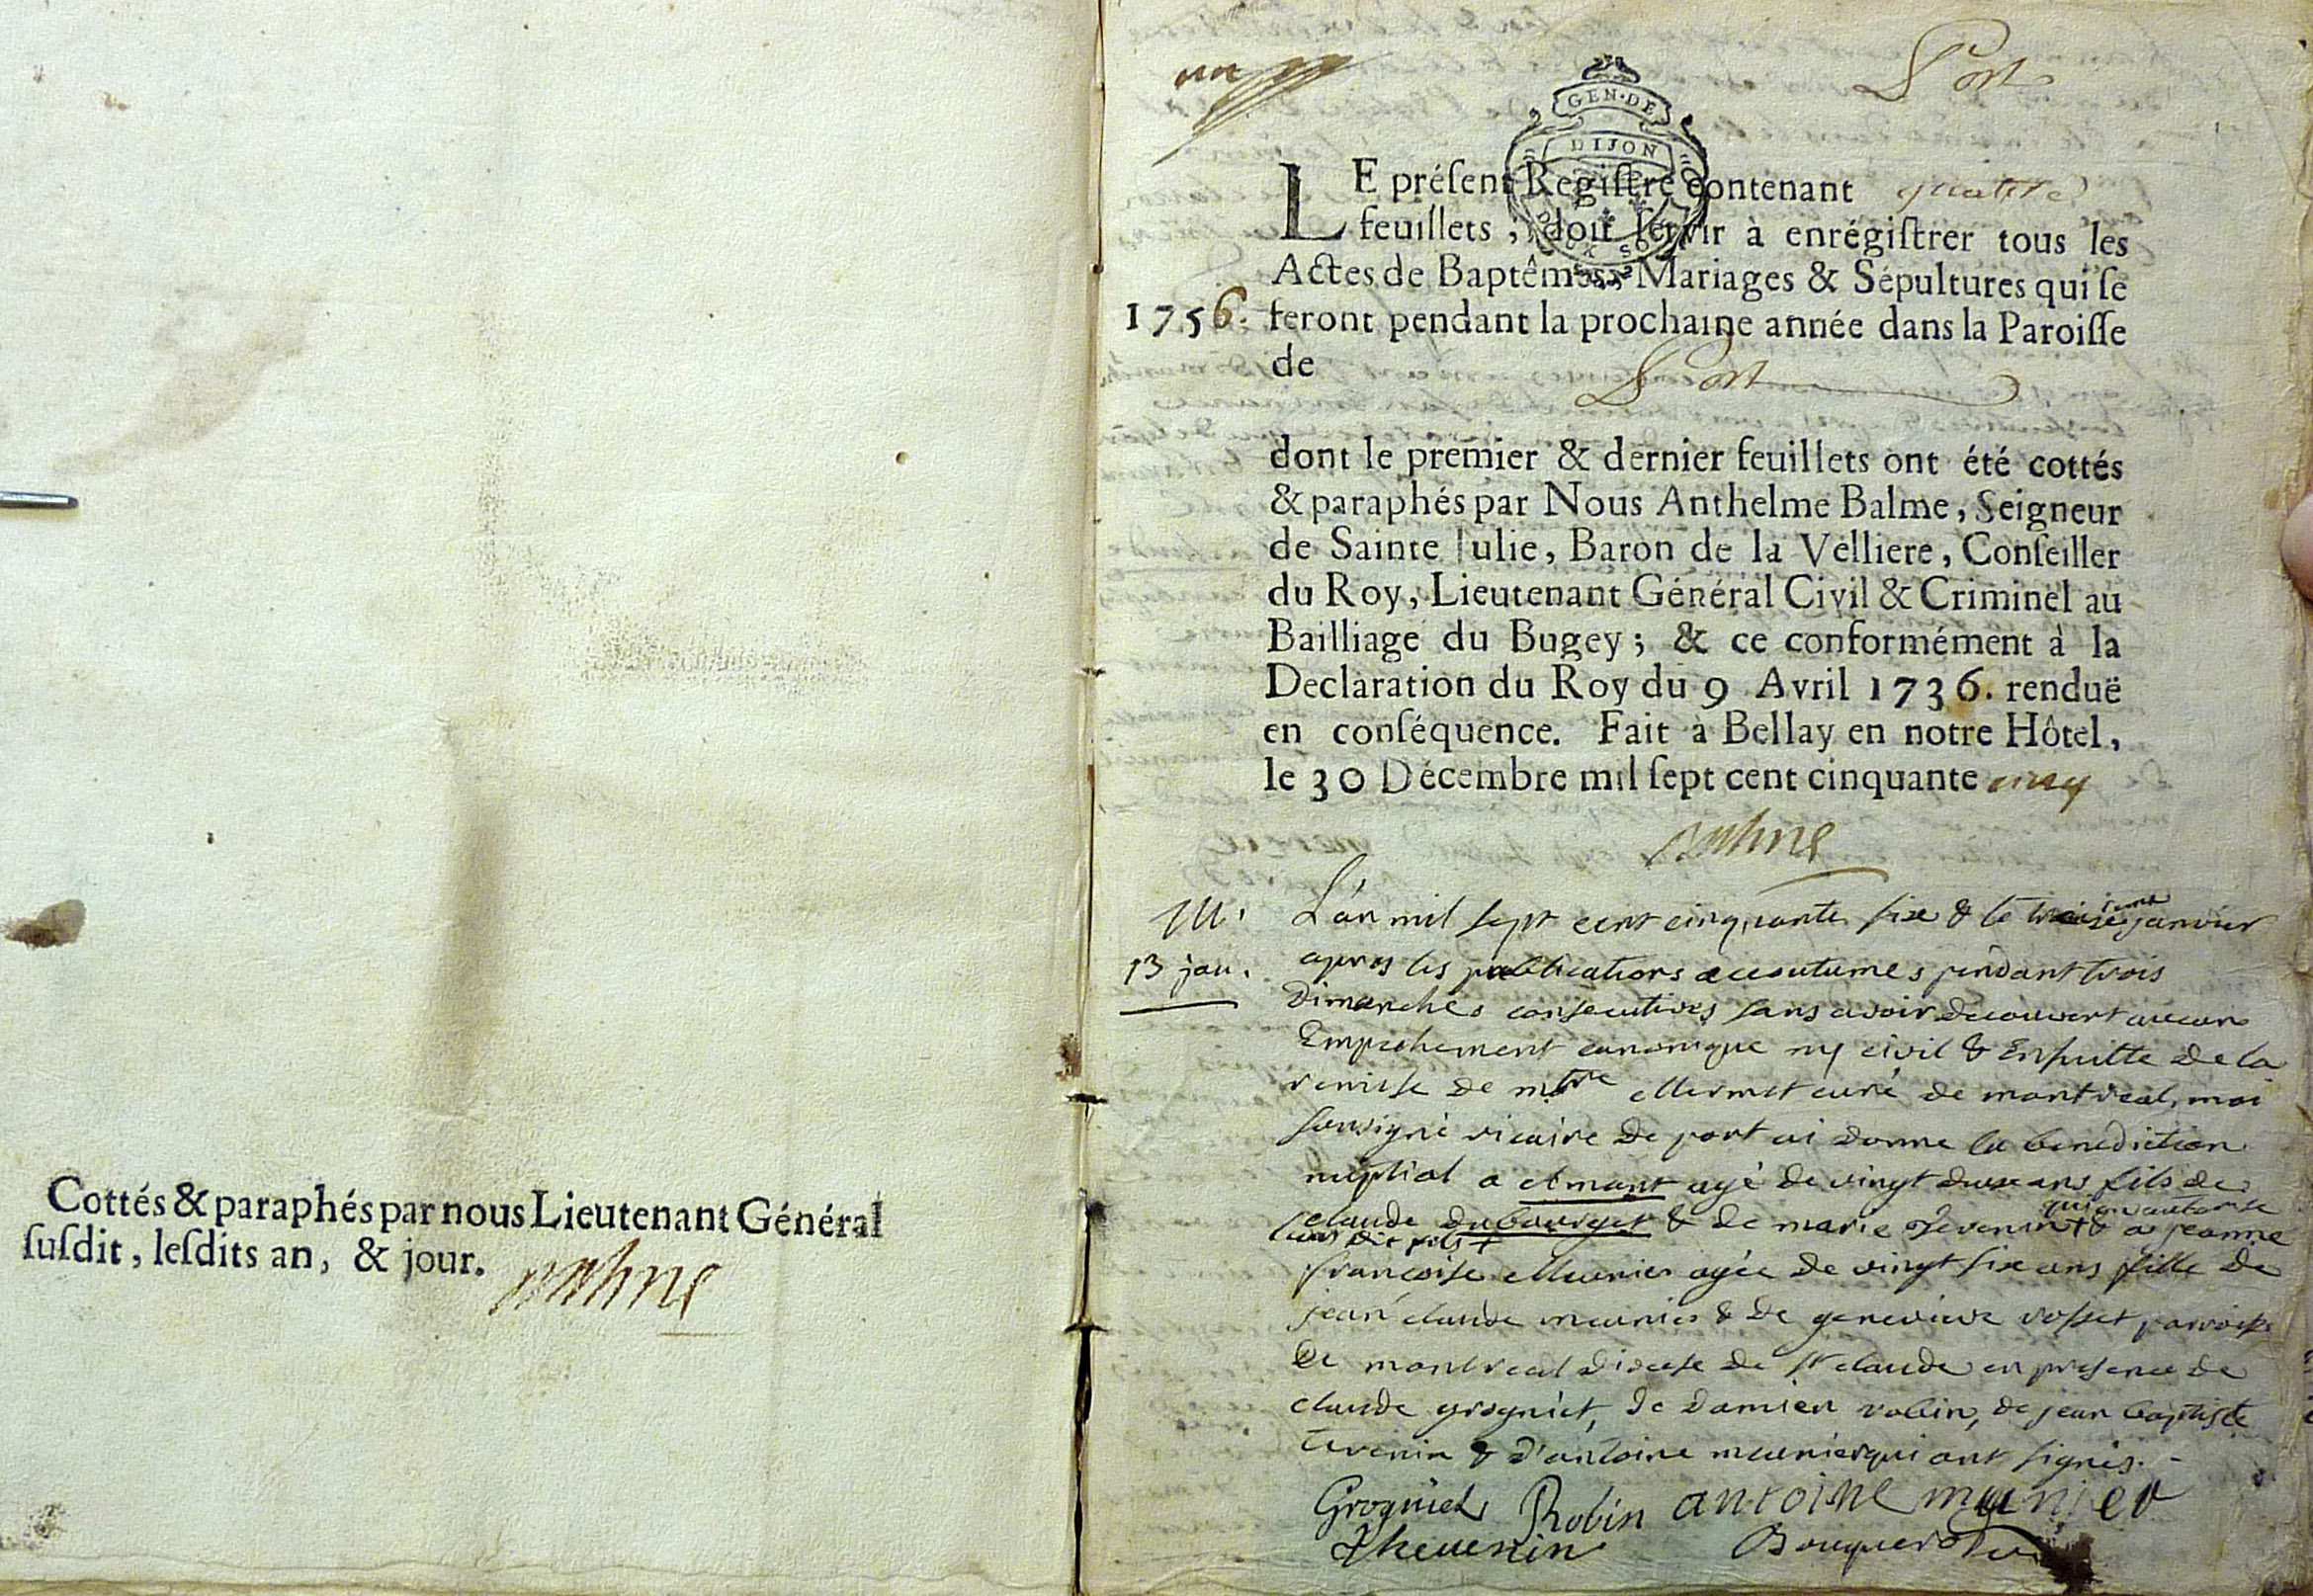 Cottés & paraphés par nous Lieutenant Général
susdit, lesdits an, & jour.
un
Port
GEN. DE
DIJON
LE présent Registre contenant quatre
feuillets, doit servir à enrégistrer tous les
Actes de Baptêmes, Mariages & Sépultures qui se
1756. feront pendant la prochaine année dans la Paroisse
de Port
dont le premier & dernier feuillets ont été cottés
& paraphés par Nous Anthelme Balme, Seigneur
de Sainte Julie, Baron de la Velliere, Conseiller
du Roy, Lieutenant Général Civil & Criminel au
Bailliage du Bugey; & ce conformément à la
Declaration du Roy du 9 Avril 1736. renduë
en conséquence. Fait à Bellay en notre Hôtel,
le 30 Décembre mil sept cent cinquante cinq
M.
13 jan.
L'an mil sept cent cinquante six & le treizieme janvier
apres les publications accoutumes pendant trois
Dimanches consecutives sans avoir decouvert aucun
Empechement canonique ny civil & Ensuitte de la
remise de mtre Mermet curé de montreal, moi
sousigné vicaire de port ai donne la benediction
nuptial a Amant agé de vingt deux ans fils de
claude dubourget & de marie Tevenin + & a jeanne
qui on autorise
leurs dit fils +
françoise Meunier agée de vingt six ans fille de
jean claude meunier & de genevieve rosset parroisse
de montreal diocese de st claude en presence de
claude grogniet, de damien robin, de jean baptiste
tevenin & d'antoine meunier qui ont signés.
Grogniet Robin antoine munier
Thevenin Bouquerod